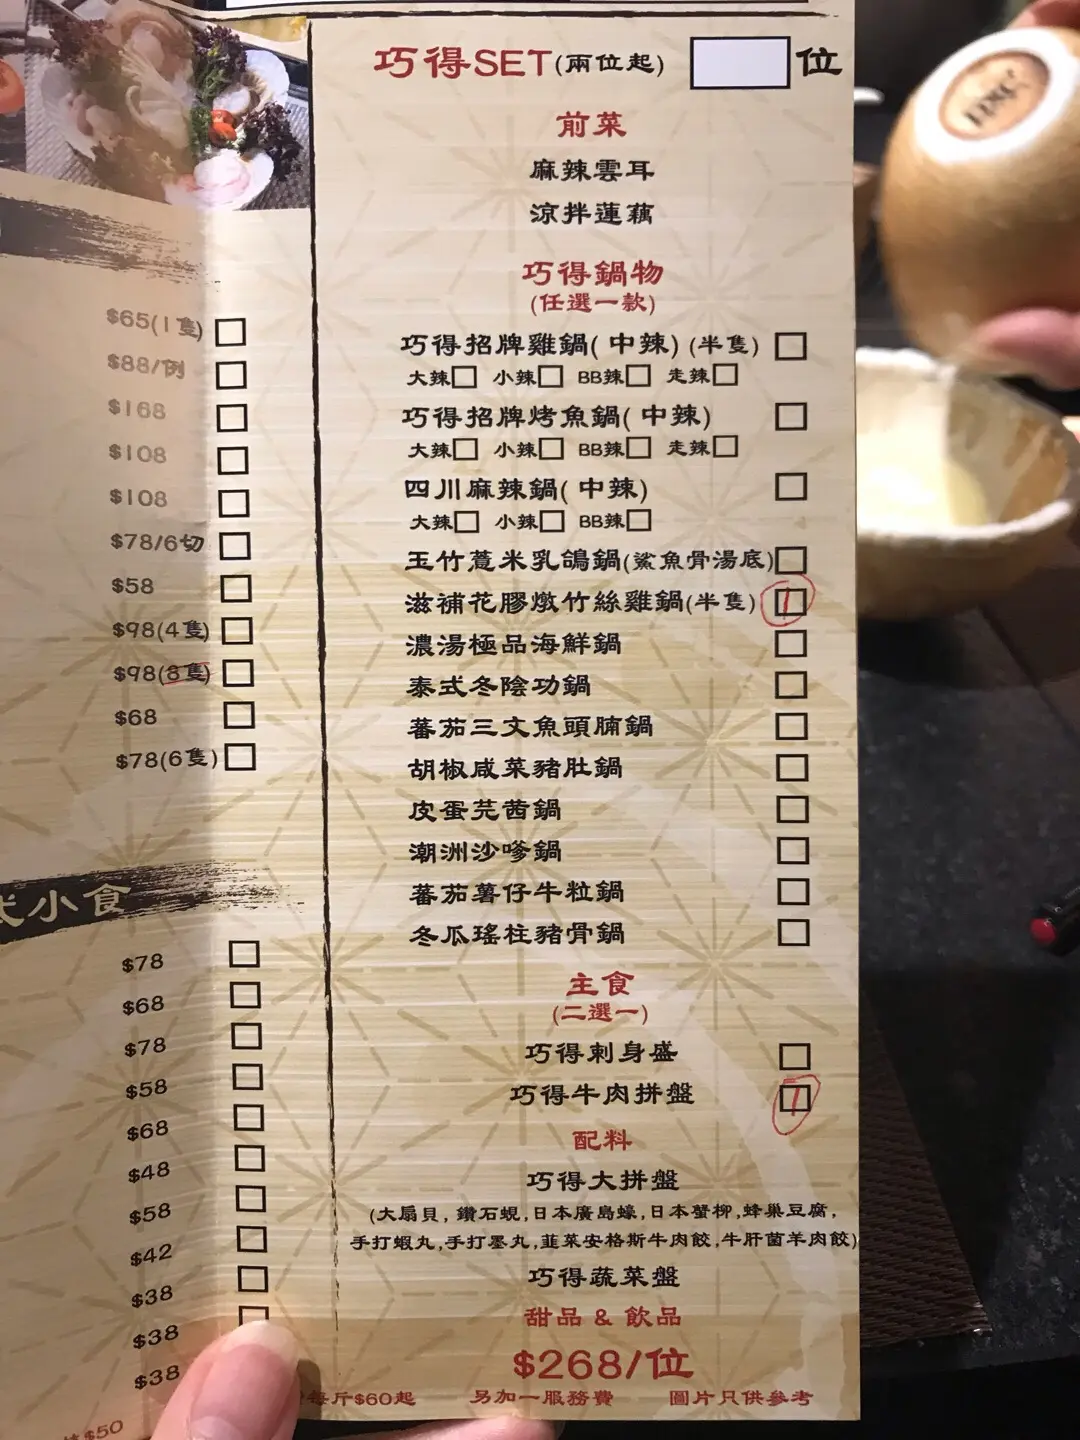 巧得SET(兩位起) 位
前菜
麻辣雲耳
涼拌蓮藕
巧得鍋物
(任選一款)
巧得招牌雞鍋(中辣)(半隻)
大辣 小辣 BB辣 走辣
巧得招牌烤魚鍋(中辣)
大辣 小辣 BB辣 走辣
四川麻辣鍋(中辣)
大辣 小辣 BB辣
玉竹薏米乳鴿鍋(鯊魚骨湯底)
滋補花膠燉竹絲雞鍋(半隻) 1
濃湯極品海鮮鍋
泰式冬陰功鍋
蕃茄三文魚頭腩鍋
胡椒咸菜豬肚鍋
皮蛋芫茜鍋
潮洲沙嗲鍋
蕃茄薯仔牛粒鍋
冬瓜瑤柱豬骨鍋
主食
(二選一)
巧得刺身盛
巧得牛肉拼盤 1
配料
巧得大拼盤
(大扇貝,鑽石蜆,日本廣島蠔,日本蟹柳,蜂巢豆腐,
手打蝦丸,手打墨丸,韮菜安格斯牛肉餃,牛肝菌羊肉餃)
巧得蔬菜盤
甜品 & 飲品
$268/位
每斤$60起 另加一服務費 圖片只供參考
$65(1隻)
$88/例
$168
$108
$108
$78/6切
$58
$98(4隻)
$98(8隻)
$68
$78(6隻)
小食
$78
$68
$78
$58
$68
$48
$58
$42
$38
$38
$38
$50